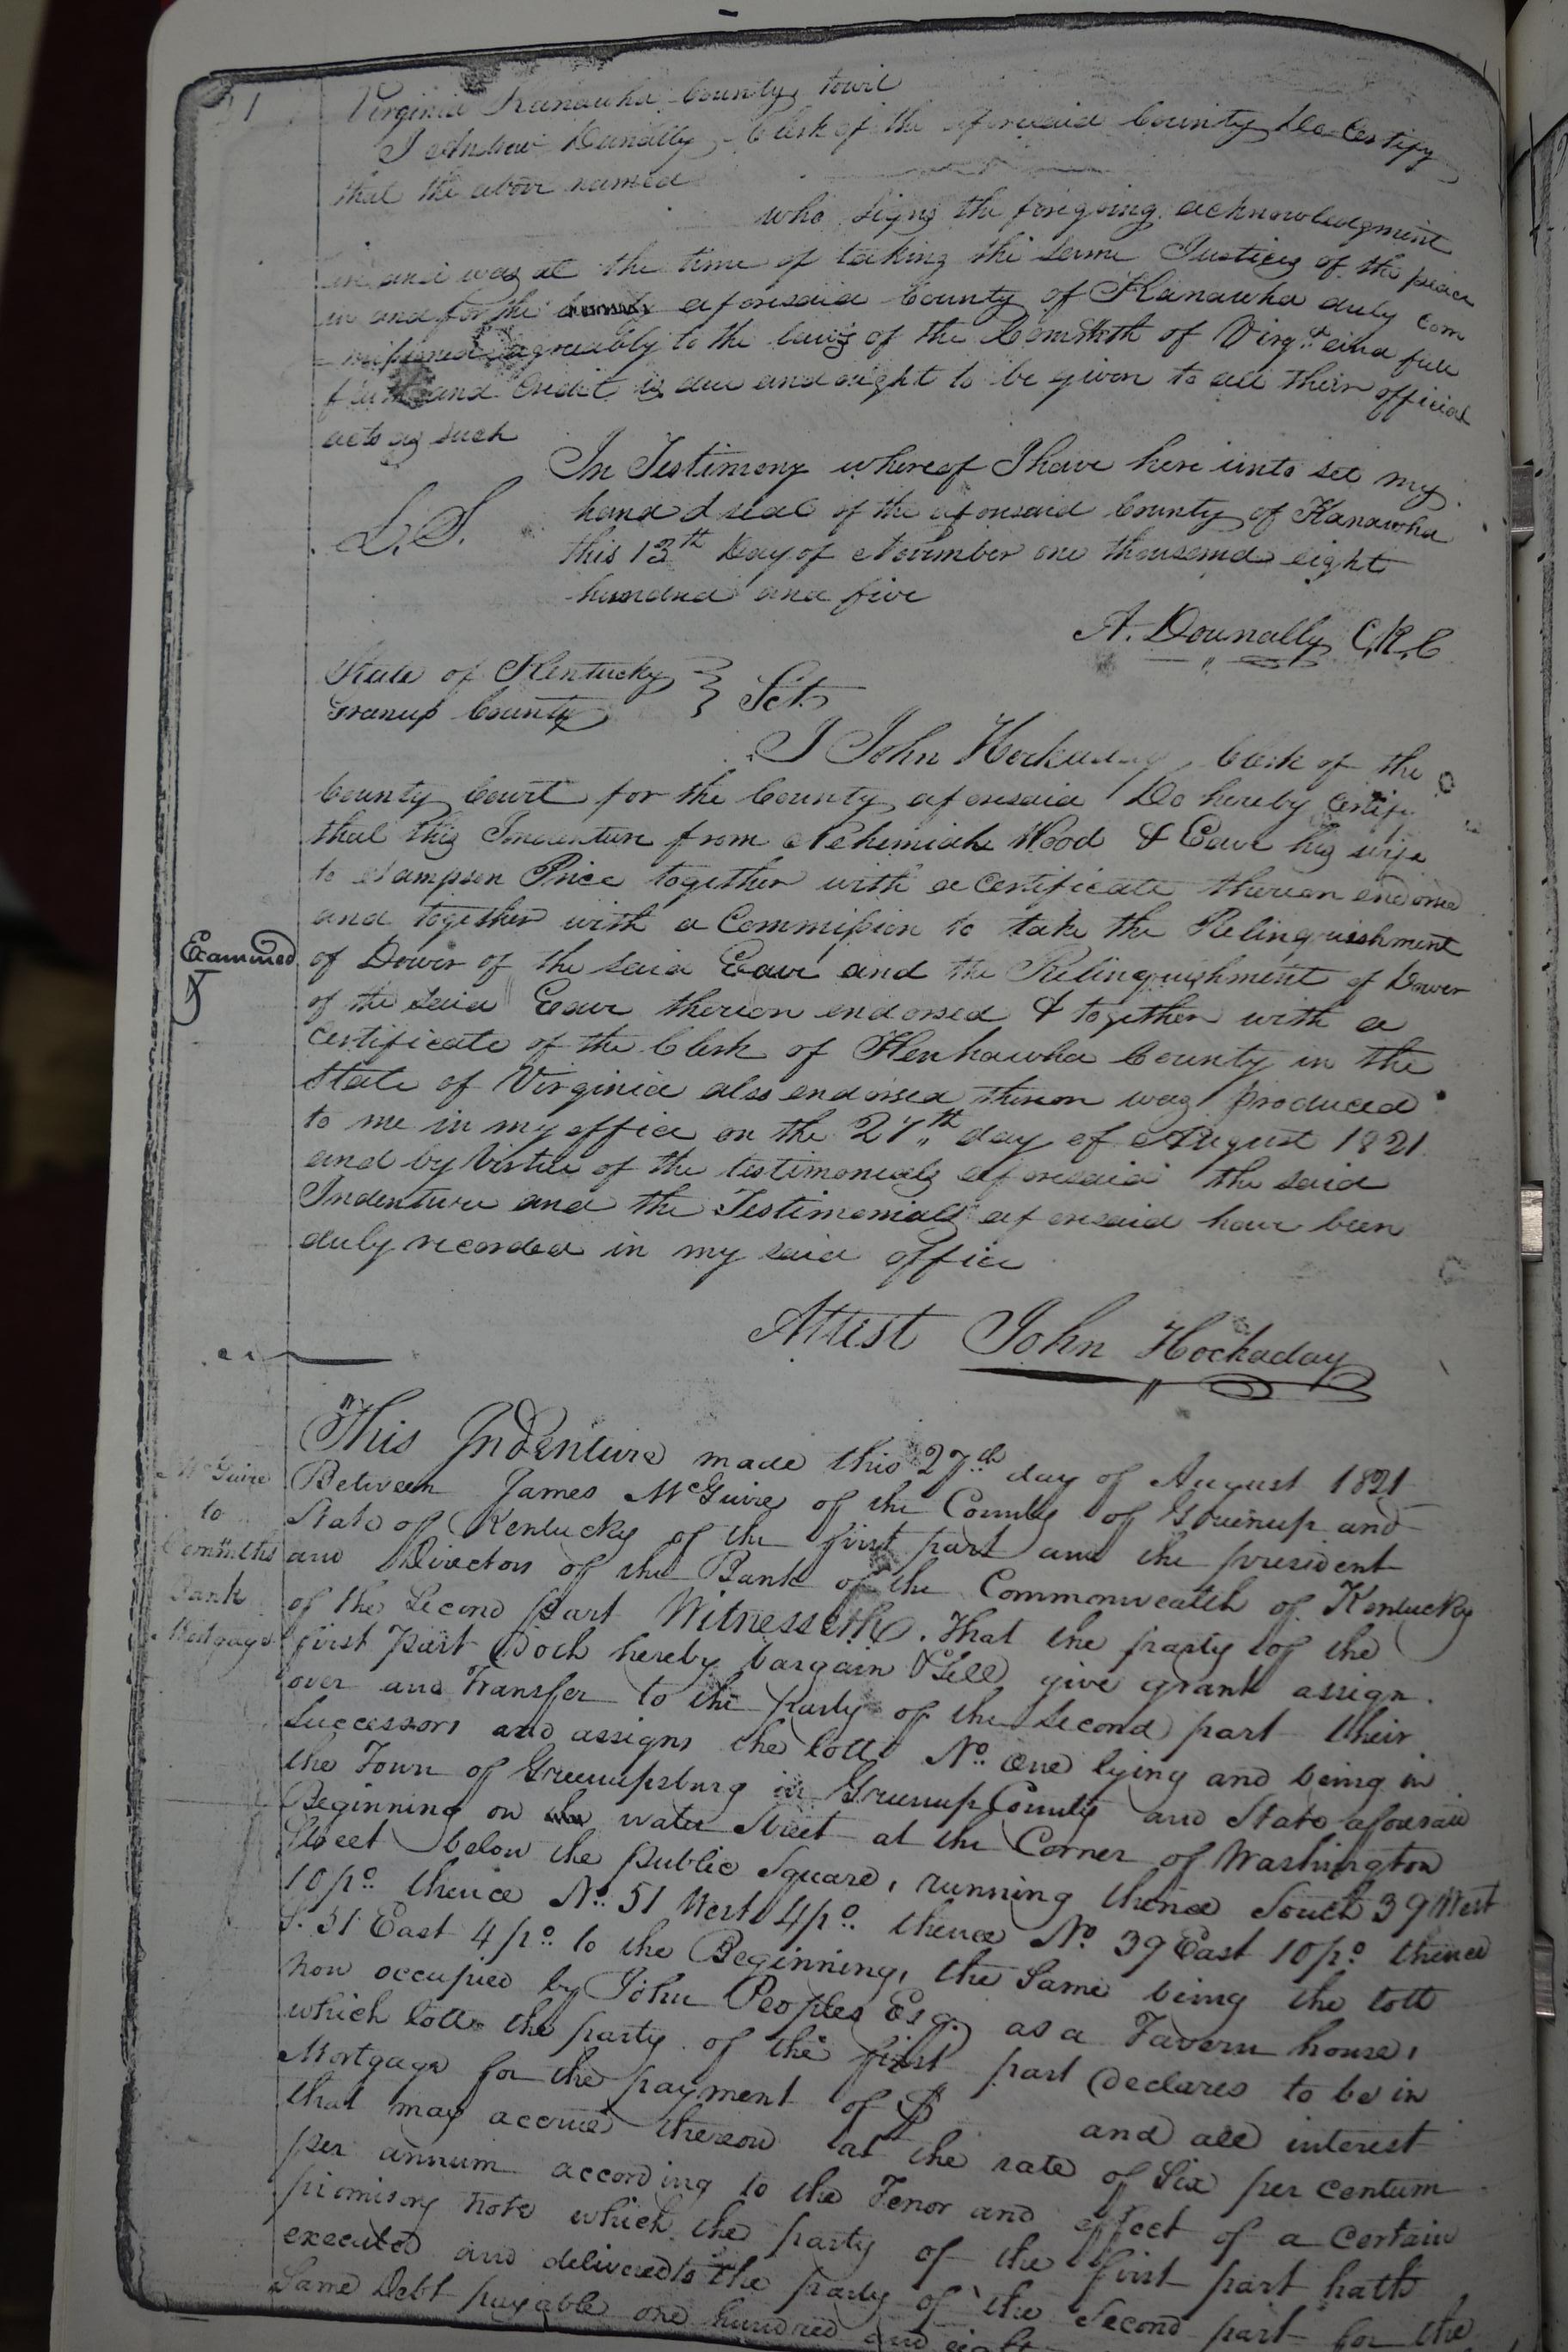 Virginia Kanawha County, towit
I Andrew Donnally, Clerk of the aforesaid County, do certify
that the above named
who signs the foregoing acknowledgment
and was at the time of taking the same Justices of the peace
in and for the aforesaid County of Kanawha duly com
=missioned agreeably to the laws of the Comwth of Virga. and full
faith and Credit is due and aught to be given to all their official
acts as such
In Testimony whereof I have here unto set my
L.S.
hand & seal of the aforesaid County of Kanawha
this 13th Day of November one thousand eight
hundred and five
A. Donnally C.K.C
State of Kentucky
Greenup County } Sct.
I John Hockaday, Clerk of the
County Court for the County aforesaid Do hereby certify
that this Indenture from Nehemiah Wood & Eave his wife
to Sampson Price together with a certificate thereon endorsed
and together with a Commission to take the Relinquishment
Examined
of Dower of the said Eave and the Relinquishment of Dower
of the said Eave thereon endorsed & together with a
certificate of the Clerk of Kenhawha County in the
State of Virginia also endorsed thereon was produced
to me in my office on the 27th day of August 1821
and by Virtue of the testimonials aforesaid the said
Indenture and the Testimonials aforesaid have been
duly recorded in my said office
Attest John Hockaday
This Indenture made this 27th day of August 1821
McGuire
to
Commlths
Bank
Mortgage
Between James McGuire of the County of Greenup and
State of Kentucky of the first part and the president
and Directors of the Bank of the Commonwealth of Kentucky
of the Second part Witnesseth. That the party of the
first part Doth hereby bargain & Sell give grant assign
over and Transfer to the party of the Second part their
Successors and assigns the lott No. One lying and being in
the Town of Greenupsburg in Greenup County and State aforesaid
Beginning on water Street at the Corner of Washington
Street below the public Square, running thence South 39 West
10 po. thence No. 51 West 4 po. thence No. 39 East 10 po. thence
S. 51 East 4 po. to the Beginning, the Same being the lott
now occupied by John Peoples Esq. as a Tavern house,
which lott the party of the first part Declares to be in
Mortgage for the payment of $ and all interest
that may accrue thereon at the rate of Six per centum
per annum according to the Tenor and effect of a certain
promisory note which the party of the first part hath
executed and delivered to the party of the Second part for the
Same Debt payable one hundred and eight